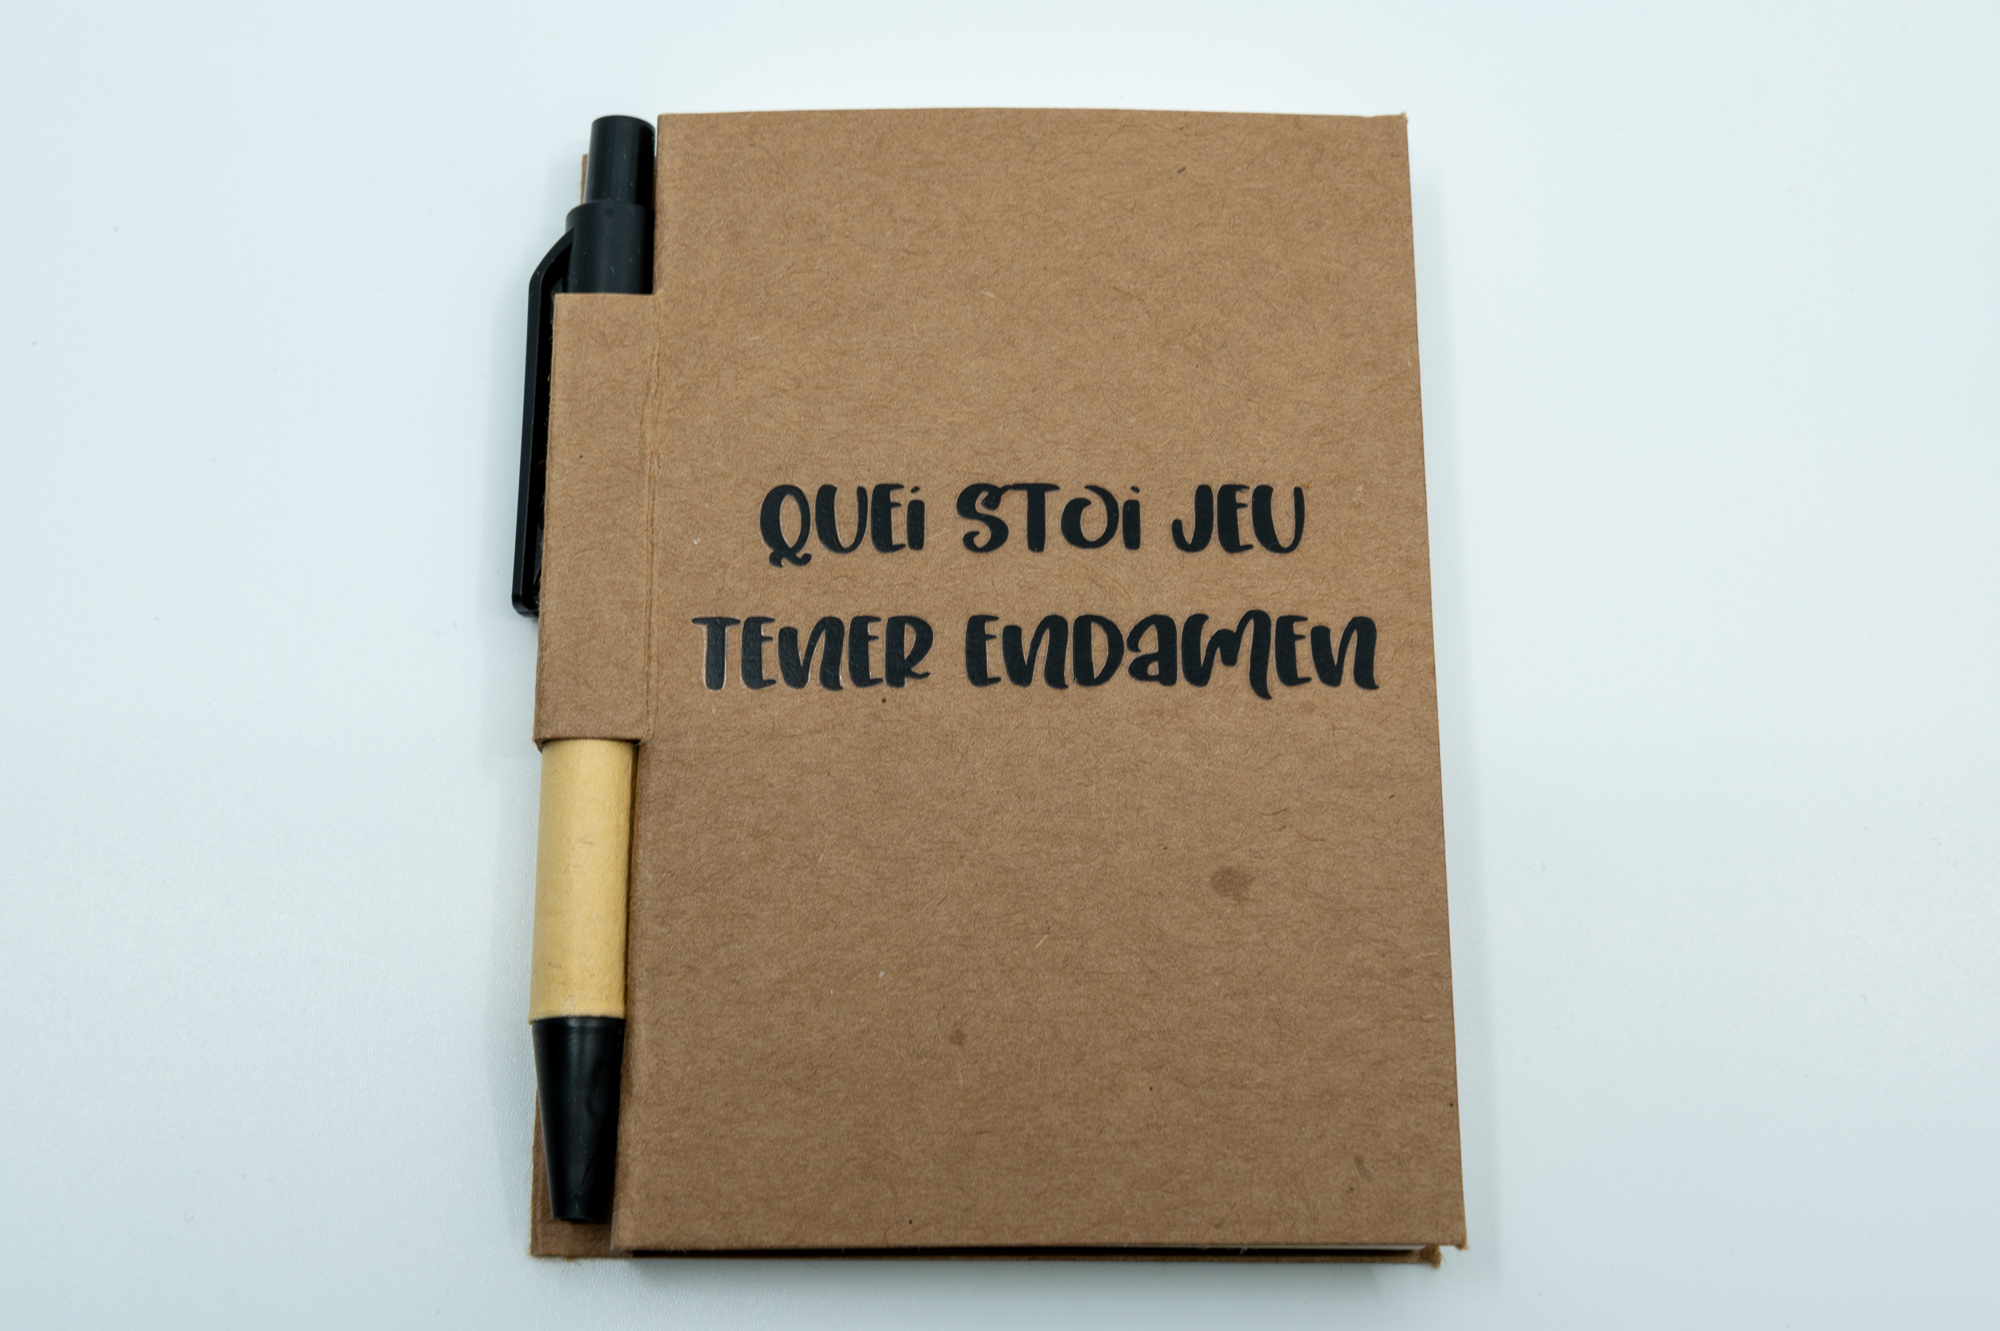 QUEI STOI JEU
TENER ENDAMEN